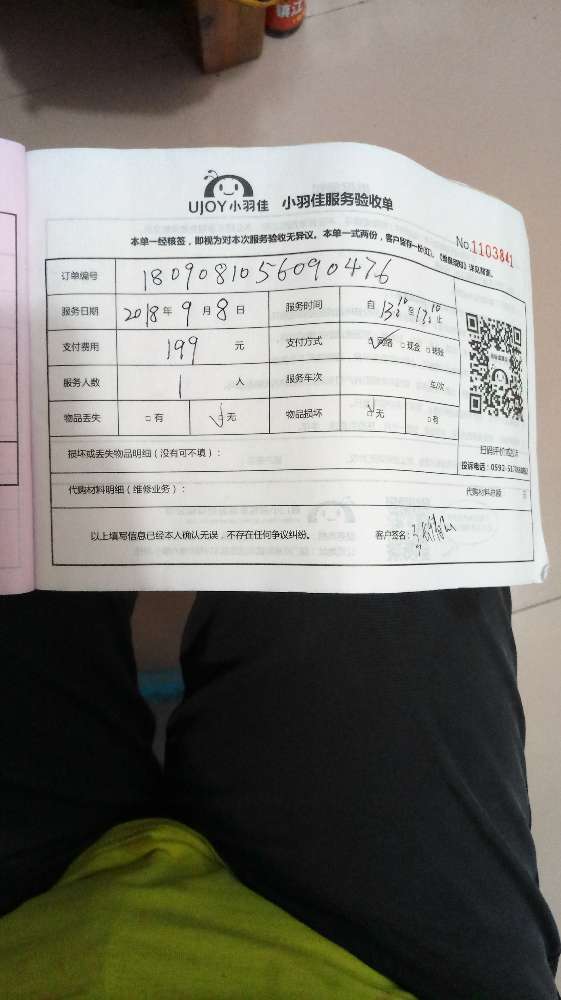 镇江
UJOY小羽佳 小羽佳服务验收单
No.1103841
本单一经核签，即视为对本次服务验收无异议。本单一式两份，客户留存一份(红)。
订单编号 1809081056090476
服务日期 2018年9月8日 服务时间 自13:10至17:10止
支付费用 199元 支付方式 ☑网络 □现金 □转账
服务人数 1人 服务车次 车/次
物品丢失 □有 ☑无 物品损坏 ☑无 □有
扫码评价或投诉
损坏或丢失物品明细（没有可不填）：
投诉电话：0592-
代购材料明细（维修业务）： 代购材料总额 元
以上填写信息已经本人确认无误，不存在任何争议纠纷。 客户签名：